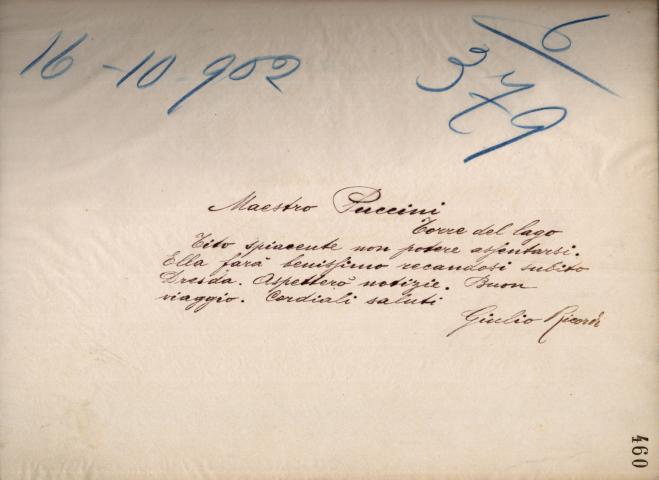 16-10-902
6/379
Maestro Puccini
Torre del lago
Tito spiacente non potere assentarsi.
Ella farà benissimo recandosi subito
Dresda. Aspetterò notizie. Buon
viaggio. Cordiali saluti
Giulio Ricordi
460